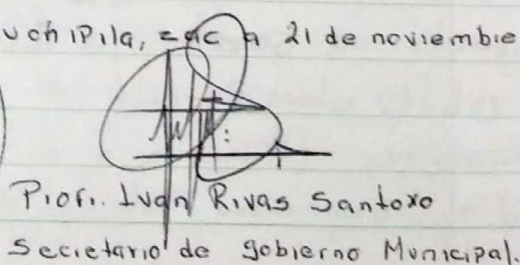 uchipila, zac a 21 de noviembre
Profr. Ivan Rivas Santoxo
Secretario de gobierno Municipal.